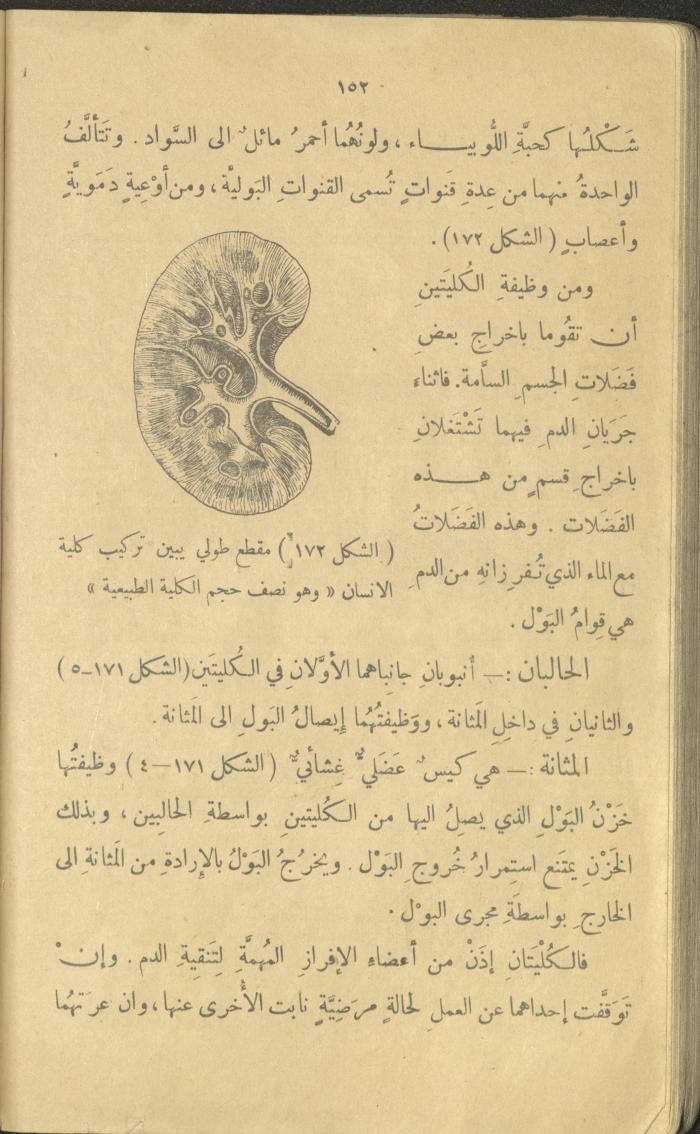 ١٥٢
شَكْلُها كحبَّةِ اللُّوبياء ، ولونُهُما أحمرُ مائلٌ الى السَّواد . وتَتألَّفُ
الواحدةُ منهما من عِدةِ قَنواتٍ تُسمى القنواتِ البَوليَّة ، ومن أوْعِيةٍ دَمَويَّةٍ
وأعصابٍ ( الشكل ١٧٢ ) .
ومن وظيفةِ الكُليَتينِ
أن تقُوما باخراجِ بعضِ
فَضَلاتِ الجسمِ السامَّة . فاثناءَ
جرَيانِ الدمِ فيهما تَشْتَغلانِ
باخراجِ قسمٍ من هذه
الفَضَلات . وهذه الفَضَلاتُ
مع الماء الذي تُفرِزانهِ من الدمِ
هي قِوامُ البَوْل .
( الشكل ١٧٢ ) مقطع طولي يبين تركيب كلية
الانسان « وهو نصف حجم الكلية الطبيعية »
الحالبان :— أنبوبانِ جانِباهما الأوَّلانِ في الكُليتَين (الشكل ١٧١–٥)
والثانيانِ في داخلِ المَثانة ، ووَظيفتُهُما إِيصالُ البَولِ الى المَثانة .
المثانة :— هي كيسٌ عَضَليٌّ غِشائيٌّ ( الشكل ١٧١–٤ ) وظيفتُها
خَزْنُ البَوْلِ الذي يصِلُ اليها من الكُليتينِ بواسطةِ الحالِبين ، وبذلك
الخَزْنِ يمتَنع استِمرارُ خُروجِ البَوْل . ويخرُجُ البَوْلُ بالإِرادةِ من المَثانةِ الى
الخارجِ بواسطَةِ مجرى البوْل .
فالكُلْيَتَانِ إِذَنْ من أعضاءِ الإفرازِ المُهمَّةِ لِتَنقيةِ الدم . وإنْ
تَوَقَّفت إحداهما عن العملِ لحالةٍ مرَضِيَّةٍ نابت الأُخرى عنها ، وان عرَتهُما